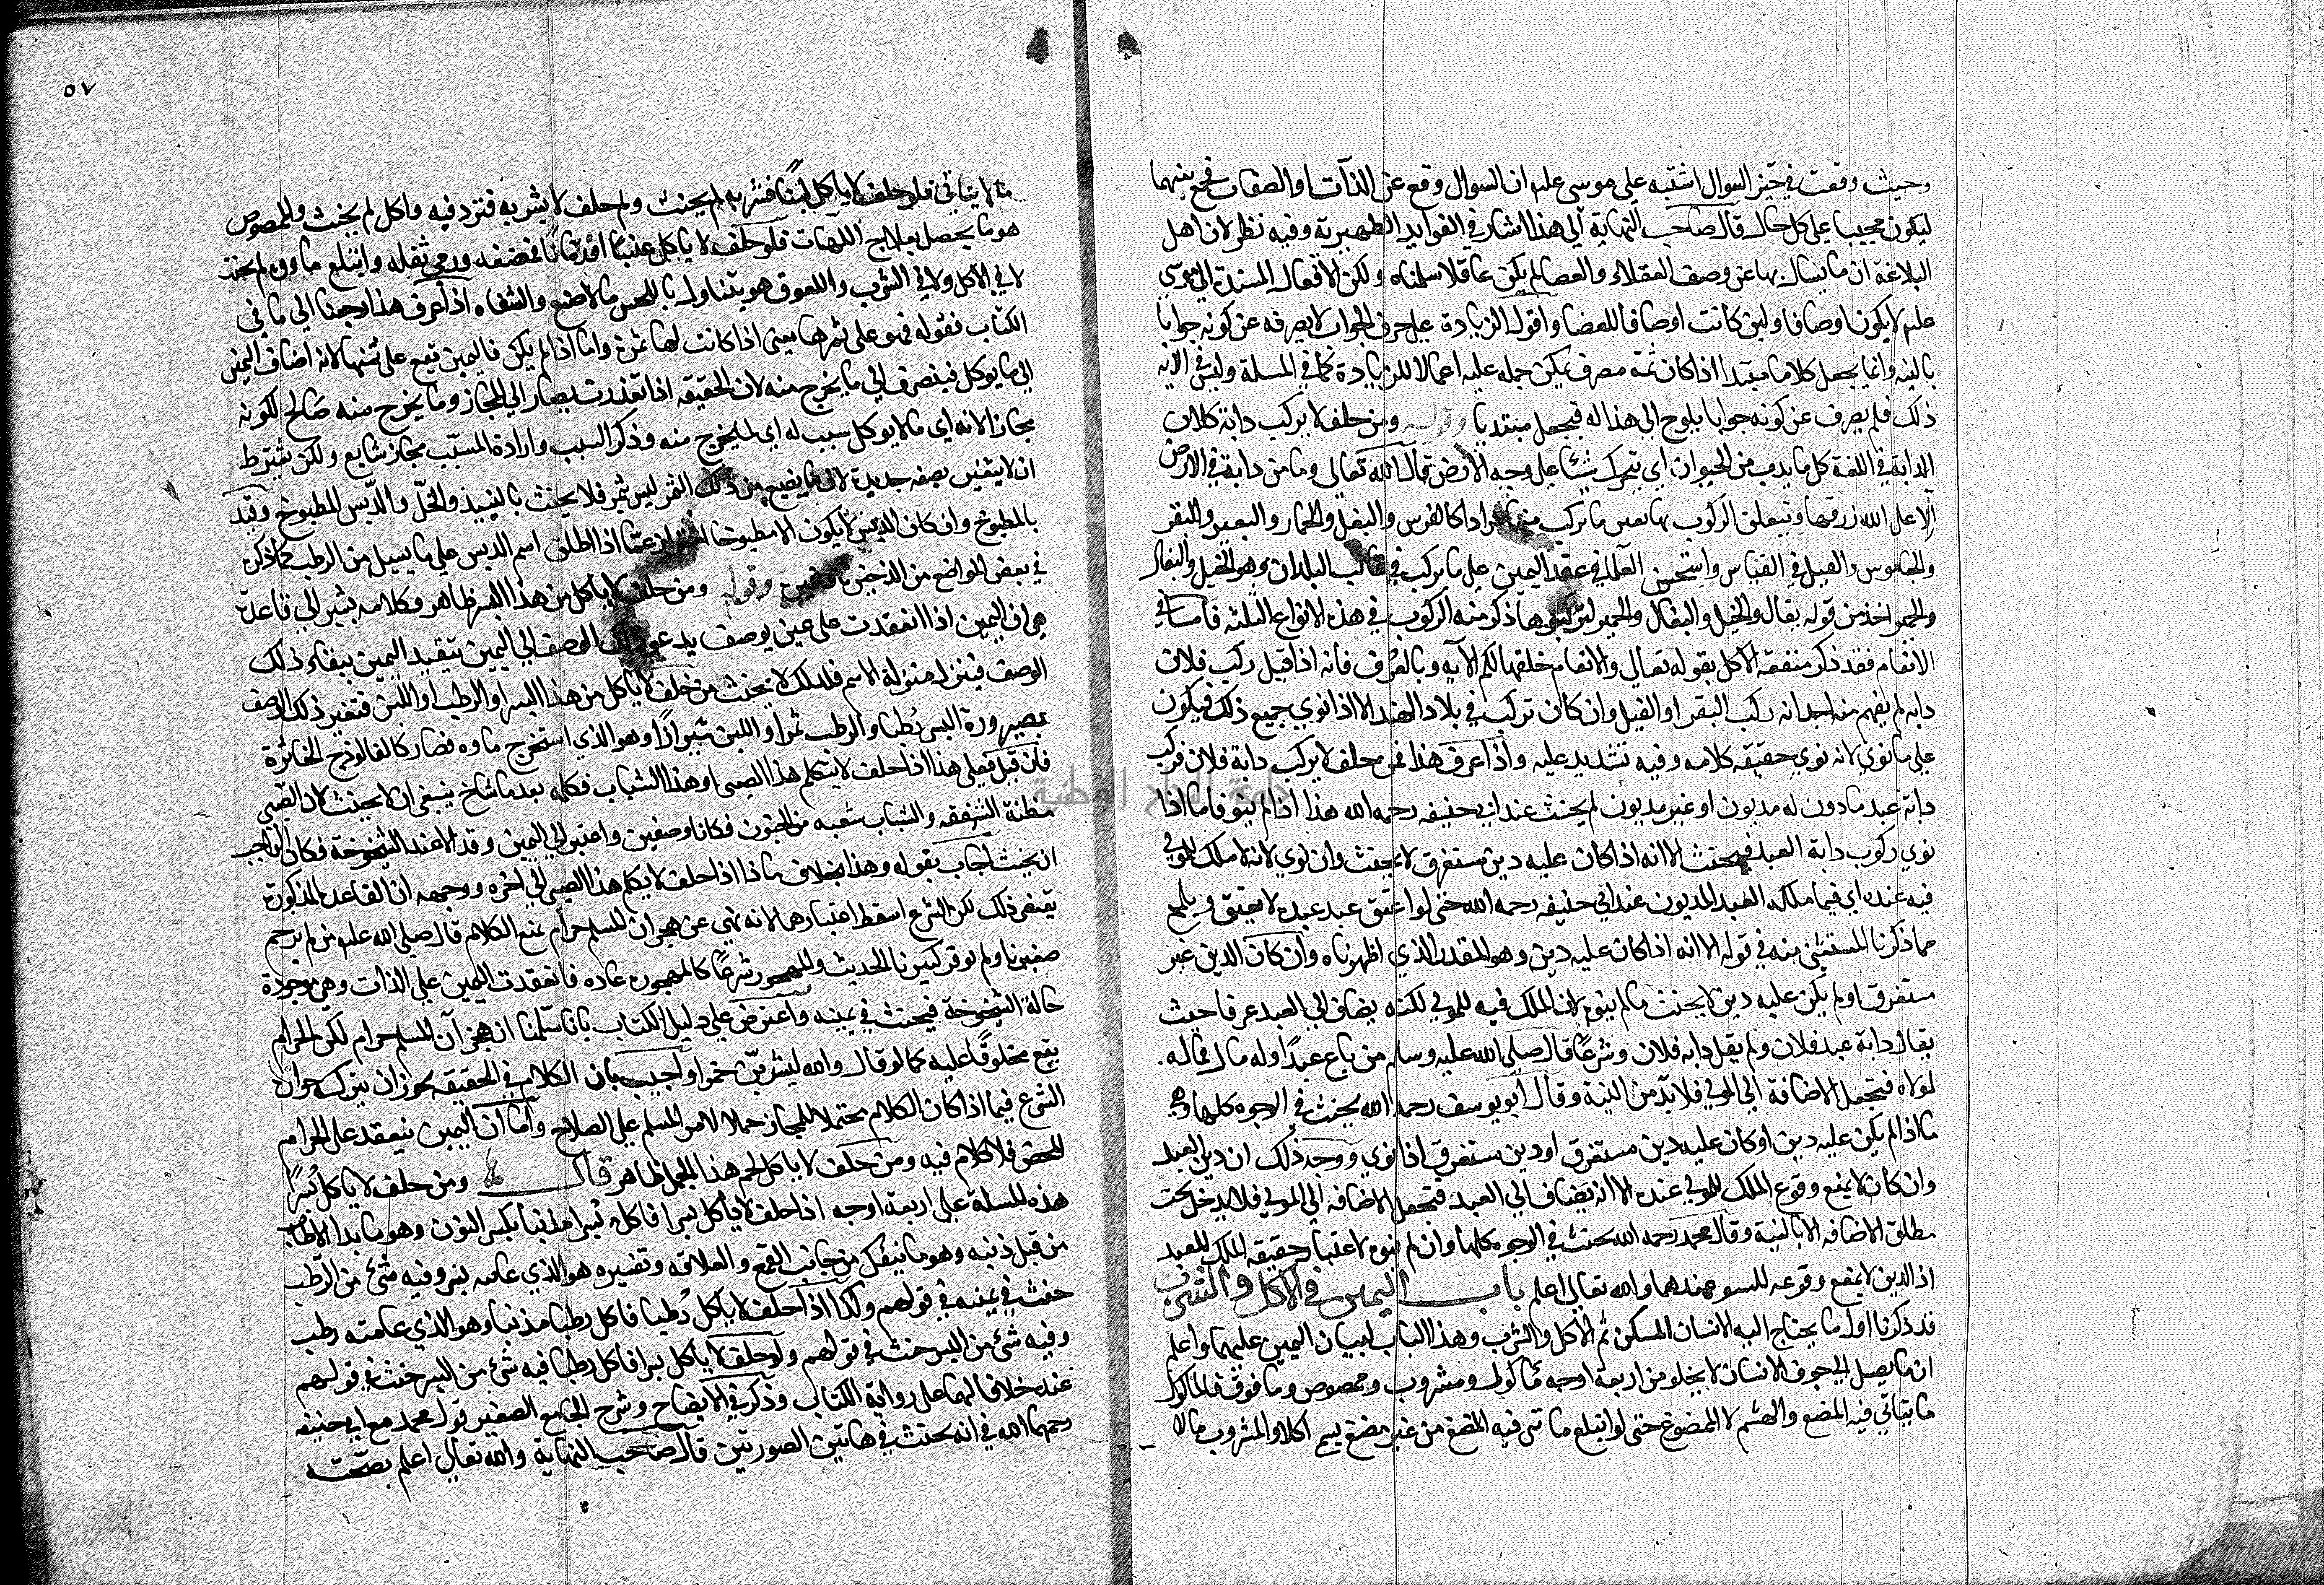 وحيث وقعت في حيز السوال اشتبه على موسى علم ان السوال وقع عن الذات او الصفات فجمع بينهما
ليكون مجيبا على كل حال قال صاحب النهاية الى هذا اشار في الفوايد الظهيرية وفيه نظر لان اهل
البلاغة ان ما يسال بها عن وصف العقلاء والعصا لم يكن عاقلا سلمناه ولكن الافعال المسندة الى موسى
علم لا يكون اوصافا ولين كانت اوصافا للعصا واقول الزيادة على حرف الجواب لا يصرفه عن كونه جوابا
بالنية وانما يجعل كلاما مبتدا اذا كان ثمة مصرف يمكن حمله عليه اعمالا للزيادة كما في المسلة وليس في الاية
ذلك فلم يصرف عن كونه جوابا يلوح الى هذا له فيجعل مبتديا وقوله ومن حلف لا يركب دابة فلان
الدابة في اللغة كل ما يدب من الحيوان اي يتحرك شيئا على وجه الارض قال الله تعالى وما من دابة في الارض
الا على الله رزقها ويتعلق الركوب بها بعين ما يركب منها مرادا كالفرس والبغل والحمار والبعير والبقر
والجاموس والفيل في القياس واستحسن العلما في عقد اليمين على ما يركب في غالب البلدان وهو الخيل والبغال
والحمير اخذ من قوله يقال والخيل والبغال والحمير لتركبوها ذكر منه الركوب في هذه الانواع الثلثة فاما في
الانعام فقد ذكر منفعة الاكل بقوله تعالى والانعام خلقها لكم الآية وبالعرف فانه اذا قيل ركب فلان
دابه لم يفهم منه احد انه ركب البقر او الفيل وان كان تركب في بلاد الهند الا اذا نوي جميع ذلك فيكون
على ما نوي لانه نوي حقيقة كلامه وفيه تشديد عليه واذا عرف هذا فمن حلف لا يركب دابة فلان فركب
دابة عبد ماذون له مديون او غير مديون لم يحنث عند ابي حنيفه رحمه الله هذا اذا لم ينو فاما اذا
نوي ركوب دابة العبد فيحنث الا انه اذا كان عليه دين مستغرق لا يحنث وان نوي لانه لا ملك للمولي
فيه عنده اي فيما ملكه العبد المديون عند ابي حنيفه رحمه الله حتى لو اعتق عبد عبده لا يعتق ويلمح
مما ذكرنا المستثنى منه في قوله الا انه اذا كان عليه دين وهو المقدر الذي اظهرناه وان كان الدين غير
مستغرق او لم يكن عليه دين لا يحنث ما لم ينوه لان الملك فيه للمولي لكنه يضاف الى العبد عرفا حيث
يقال دابة عبد فلان ولم يقل دابه فلان وشرعا قال صلى الله عليه وسلم من باع عبدا وله مال فماله
لمولاه فتجعل الاضافة الى المولي فلا بد من النية وقال ابو يوسف رحمه الله يحنث في الوجوه كلها وهي
ما اذا لم يكن عليه دين او كان عليه دين مستغرق او دين مستغرق اذا نوي ووجه ذلك ان دين العبد
وان كان لا يمنع وقوع الملك للمولي عنده الا انه يضاف الى العبد فتجعل الاضافه الى المولي فلا يدخل تحت
مطلق الاضافه الا بالنية وقال محمد رحمه الله يحنث في الوجوه كلها وان لم ينوه لاعتبار حقيقة الملك للعبد
اذ الدين لا يمنع وقوعه للسيد عندهما والله تعالى اعلم باب اليمين في الاكل والشرب
قد ذكرنا اول ما يحتاج اليه الانسان المسكن ثم الاكل والشرب وهذا الباب لبيان اليمين عليهما واعلم
ان ما يصل الى جوف الانسان لا يخلو من اربعة اوجه مأكول ومشروب وممصوص وملعوق فالماكول
ما يتاتي فيه المضغ والهشم لا الممضوغ حتى لو ابتلع ما تى فيه المضغ من غير مضغ يسم اكلا والمشروب ما لا
٥٧
ما لا يتاتي فلو حلف لا ياكل لبنا فشربه لم يحنث ولو حلف لا يشربه فثرد فيه واكل لم يحنث والممصوص
هو ما يحصل بعلاج اللهات فلو حلف لا ياكل عنبا او رمانا فمضغه ورمي ثقله وابتلع ماوه لم يحنث
لا في الاكل ولا في الشرب واللعوق هو يتناول باللحس مالاصبع والشفاه اذا عرف هذا رجعنا الى ما في
الكتاب فقوله فهو على ثمرها يعني اذا كانت لها ثمرة واما اذا لم يكن فاليمين تقع على ثمنها لانه اضاف اليمين
الى ما يوكل فينصرف الى ما يخرج منه لان الحقيقه اذا تعذرت يصار الى المجاز وما يخرج منه صالح لكونه
مجازا لانه اي ما لا يوكل سبب له اي لما يخرج منه وذكر السبب وارادة المسبب مجاز شايع ولكن يشترط
ان لا يتغير بصفه جديدة لان ما يضيع من ذلك الثمر ليس ثمر فلا يحنث بالنبيذ والخل والدبس المطبوخ وقيد
بالمطبوخ وان كان الدبس لا يكون الا مطبوخا احترازا عما اذا اطلق اسم الدبس على ما يسيل من الرطب كما ذكره
في بعض المواضع من الذخيرة وقوله ومن حلف لا ياكل من هذا البسر ظاهر وكلامه يشير الى قاعدة
هي ان اليمين اذا انعقدت على عين بوصف يدعو ذلك الوصف الى اليمين يتقيد اليمين ببقاء ذلك
الوصف فينزل منزلة الاسم فلذلك لا يحنث من حلف لا ياكل من هذا البسر او الرطب او اللبن فتغير ذلك الوصف
بصيرورة البسر رطبا والرطب تمرا او اللبن شيرازا وهو الذي استخرج ماوه فصار كالفالوذج الخاثرة
فان قيل فعلى هذا اذا حلف لا يتكلم هذا الصبي او هذا الشباب فكلمه بعد ما شاخ ينبغي ان لا يحنث لان الصبي
مظنة الشفقه والشباب شعبه من الجنون فكانا وصفين داعيين الى اليمين وقد الا عند الشيخوخة فكان الواجب
ان يحنث اجاب بقوله وهذا بخلاف ما اذا حلف لا يكلم هذا الصبي الى اخره ووجهه ان القاعده المذكورة
يقتضى ذلك لكن الشرع اسقط اعتبارها لانه نهي عن هجران المسلم حرام بمنع الكلام قال صلى الله علم من لم يرحم
صغيرنا ولم يوقر كبيرنا الحديث والمهجور شرعا كالمهجوره عاده فانعقدت اليمين على الذات وهي موجودة
حالة الشيخوخة فيحنث في يمينه واعترض على دليل الكتاب بانا سلمنا ان هجرآن المسلم حرام لكن الحرام
يقع محلوفا عليه كما لو قال والله ليشربن خمرا واجيب بان الكلام في الحقيقه يجوز ان يترك جواز
الشرع فيما اذا كان الكلام محتملا للمجاز حملا لامر المسلم على الصلاح واما ان اليمين ينعقد على الحرام
المحض فلا كلام فيه ومن حلف لا ياكل لحم هذا الحمل ظاهر قال ومن حلف لا ياكل بسرا
هذه المسلة على اربعة اوجه اذا حلف لا ياكل بسرا فاكل بسرا مذنبا بكسر النون وهو ما بدا الارطاب
من قبل ذنبه وهو ما يبفل من جانب القمع والعلاقه وتفسيره هو الذي عامه بسر وفيه شئ من الرطب
حنث في يمينه في قولهم وكذا اذا حلف لا ياكل رطبا فاكل رطبا مذنبا وهو الذي عامته رطب
وفيه شئ من البسر حنث في قولهم ولو حلف لا ياكل بسرا فاكل رطبا فيه شئ من البسر حنث في قولهم
عنده خلافا لهما على رواية الكتاب وذكر في الايضاح وشرح الجامع الصغير قول محمد مع ابي حنيفه
رحمهما الله في انه يحنث في هاتين الصورتين قال صاحب النهاية والله تعالى اعلم بصحته